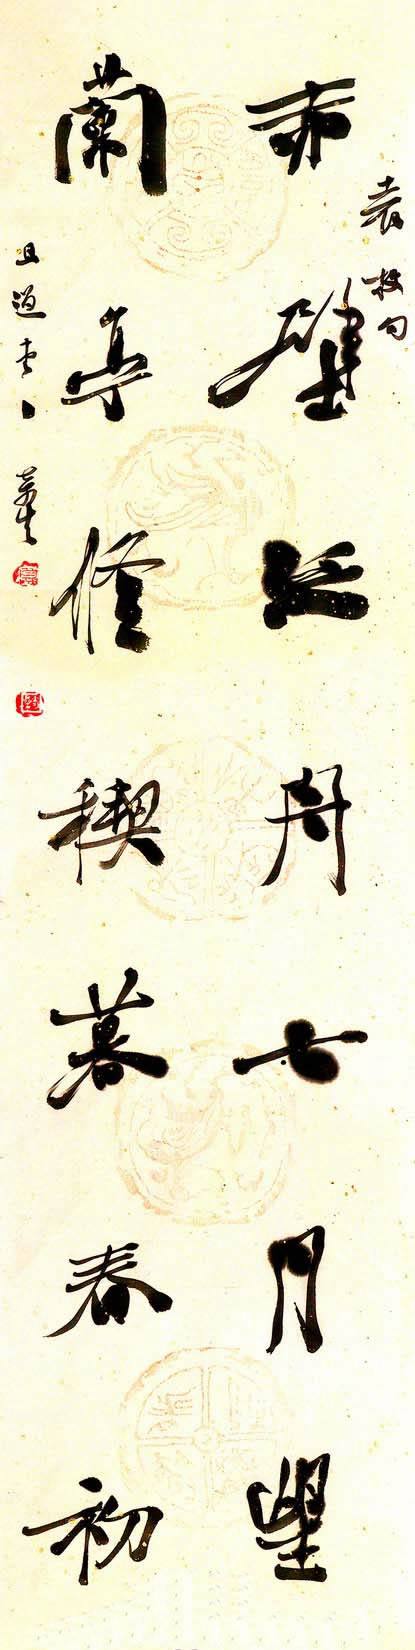 袁枚句
赤壁泛舟七月望
蘭亭修禊暮春初